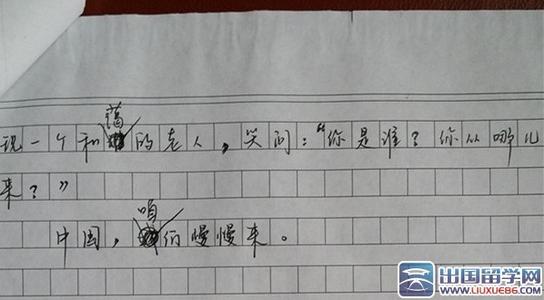 现一个和蔼的老人，笑问：“你是谁？你从哪儿
来？”
中国，咱们慢慢来。
出国留学网
WWW.LIUXUE86.COM